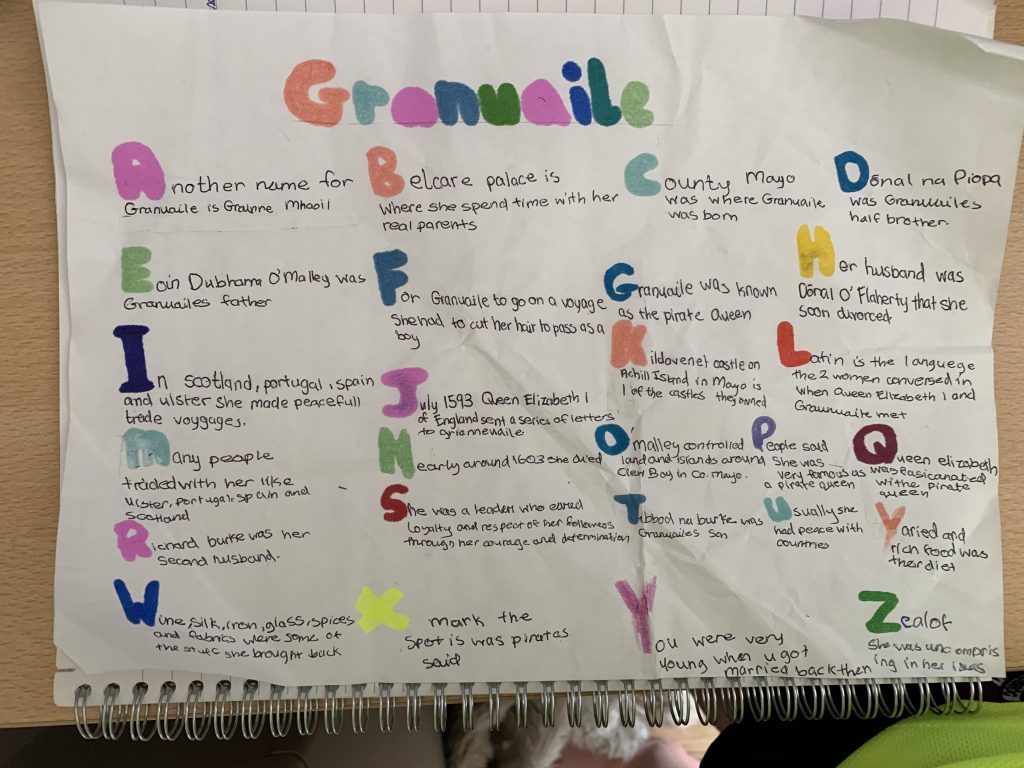 Granuaile
Another name for
Granuaile is Grainne Mhaoil
Belcare palace is
where she spend time with her
real parents
County Mayo
was where Granuaile
was born
Dónal na Piopa
was Granuailes
half brother.
Eoin Dubhara O'Malley was
Granuailes father
For Granuaile to go on a voyage
She had to cut her hair to pass as a
boy
Granuaile was known
as the pirate Queen
Her husband was
Dónal O'Flaherty that she
soon divorced
In scotland, portugal, spain
and ulster she made peacefull
trade voygages.
July 1593 Queen Elizabeth 1
of England sent a series of letters
to
Kildavenet castle on
Achill Island in Mayo is
1 of the castles they owned
Latin is the languege
the 2 women conversed in
when Queen Elizabeth 1 and
Granuaile met
Many people
traded with her like
Ulster, Portugal, spain and
Scotland
Nearly around 1603 she died
O'malley controlled
land and islands around
Clew Bay in Co. Mayo.
People said
She was
very famous as
a pirate queen
Queen elizabeth
was
withe pirate
queen
Richard burke was her
second husband.
She was a leader who earned
loyalty and respect of her followers
through her courage and determination
Tibbod na burke was
Granuailes son
Usually she
had peace with
countries
Yaried and
rich food was
their diet
Wine, silk, iron, glass, spices
and fabrics were some of
the stuff she brought back
X mark the
Spot is was pirates
said
You were very
young when u got
married back then
Zealof
She was uncompris
ing in her ideas